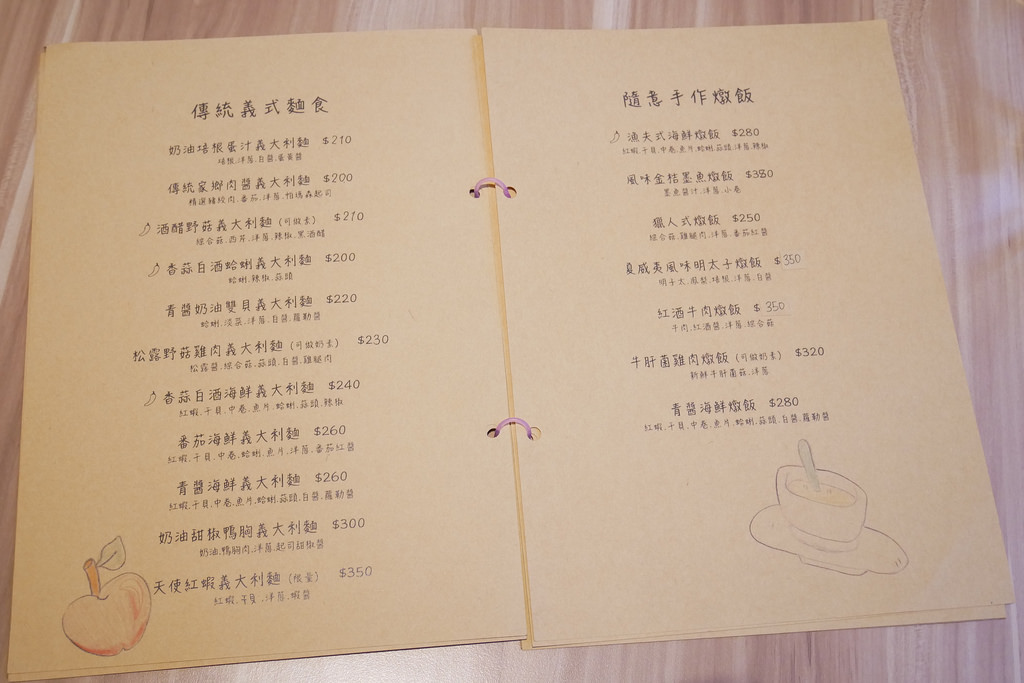 傳統義式麵食
奶油培根蛋汁義大利麵 $210
培根.洋蔥.白醬.蛋黃醬
傳統家鄉肉醬義大利麵 $200
精選豬絞肉.番茄.洋蔥.帕瑪森起司
酒醋野菇義大利麵 (可做素) $210
綜合菇.西芹.洋蔥.辣椒.黑酒醋
香蒜白酒蛤蜊義大利麵 $200
蛤蜊.辣椒.蒜頭
青醬奶油雙貝義大利麵 $220
蛤蜊.淡菜.洋蔥.白醬.羅勒醬
松露野菇雞肉義大利麵 (可做奶素) $230
松露醬.綜合菇.蒜頭.白醬.雞腿肉
香蒜白酒海鮮義大利麵 $240
紅蝦.干貝.中卷.魚片.蛤蜊.蒜頭.辣椒
番茄海鮮義大利麵 $260
紅蝦.干貝.中卷.蛤蜊.魚片.洋蔥.番茄紅醬
青醬海鮮義大利麵 $260
紅蝦.干貝.中卷.魚片.蛤蜊.蒜頭.白醬.羅勒醬
奶油甜椒鴨胸義大利麵 $300
奶油.鴨胸肉.洋蔥.起司甜椒醬
天使紅蝦義大利麵 (限量) $350
紅蝦.干貝.洋蔥.蝦醬
隨意手作燉飯
漁夫式海鮮燉飯 $280
紅蝦.干貝.中卷.魚片.蛤蜊.蒜頭.洋蔥.辣椒
風味金桔墨魚燉飯 $380
墨魚醬汁.洋蔥.小卷
獵人式燉飯 $250
綜合菇.雞腿肉.洋蔥.番茄紅醬
夏威夷風味明太子燉飯 $350
明子太.鳳梨.培根.洋蔥.白醬
紅酒牛肉燉飯 $350
牛肉.紅酒醬.洋蔥.綜合菇
牛肝菌雞肉燉飯 (可做奶素) $320
新鮮牛肝菌菇.洋蔥
青醬海鮮燉飯 $280
紅蝦.干貝.中卷.魚片.蛤蜊.蒜頭.白醬.羅勒醬